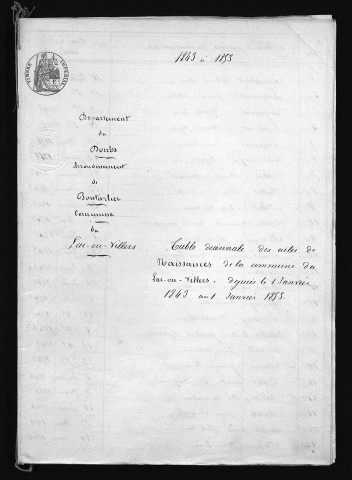 1843 à 1853
TIMBRE IMPERIAL
Département
du
Doubs
Arrondissement
de
Pontarlier
Commune
du
Lac-ou-Villers
Table décennale des actes de
Naissances de la commune du
Lac-ou-Villers. depuis le 1 Janvier
1843 au 1 Janvier 1853.